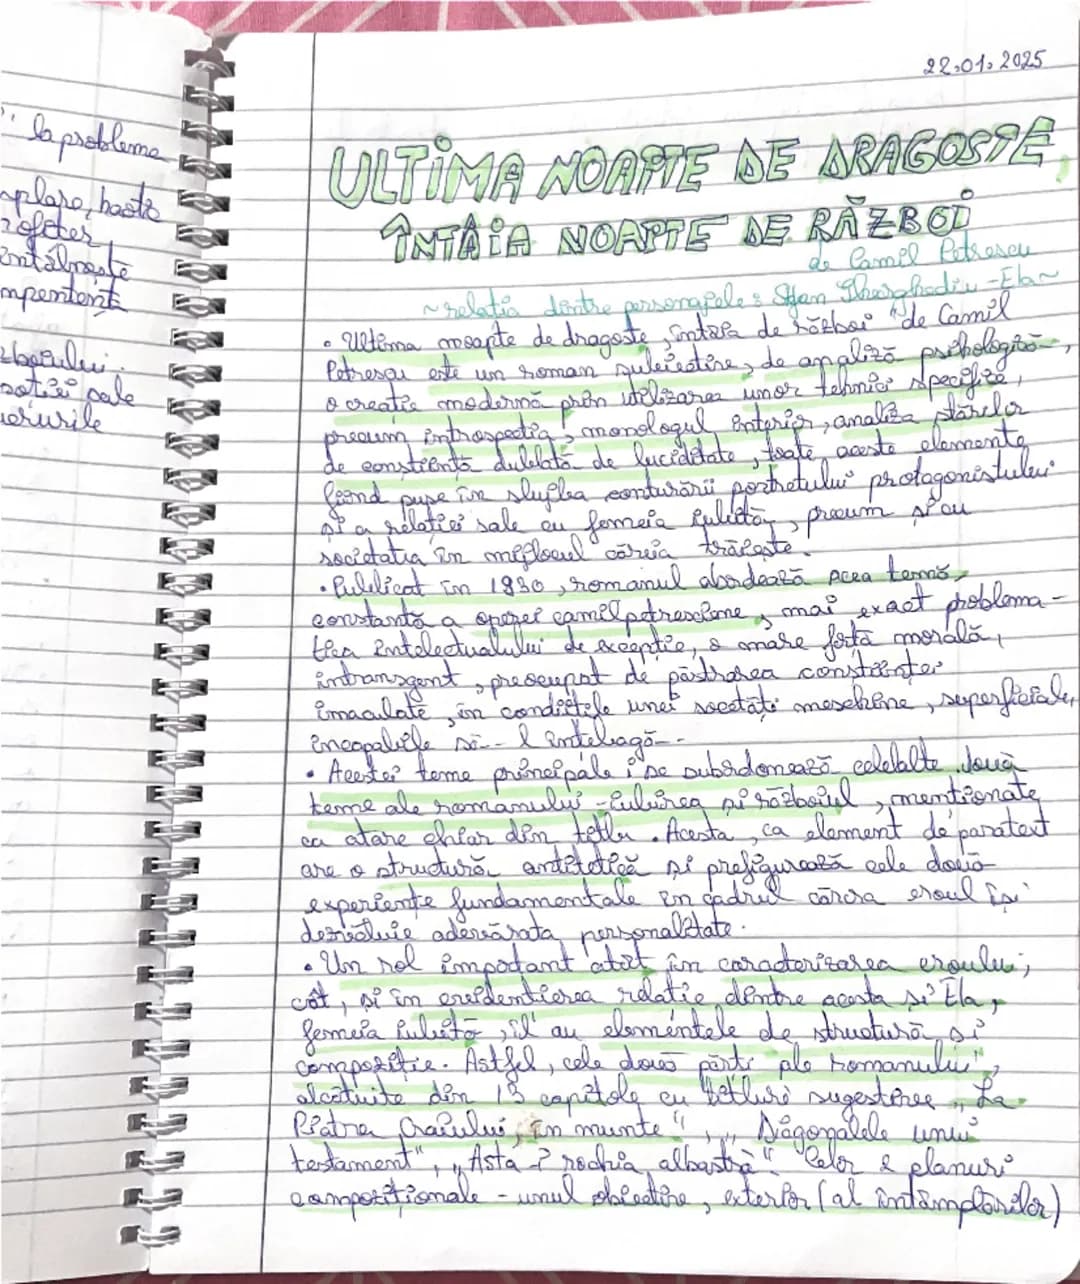 " la problema
aplare, hasta
zofcter
entâlneste
mpentent
zboiului.
sotiei sale
erurile
22.01.2025
ULTIMA NOAPTE DE DRAGOSTE,
ÎNTÂIA NOAPTE DE RĂZBOI
de Camil Petrescu
~ relatia dintre personajele: Stefan Gheorghediu - Ela ~
• "Ultima noapte de dragoste, întâia de război" de Camil
Petrescu este un roman subiectiv, de analiză psihologică,
o creatie modernă prin utilizarea unor tehnici specifice,
precum introspectia, monologul interior, analiza stărilor
de constientă dublată de luciditate, toate aceste elemente
fiind puse în slujba conturării portretului protagonistului
si a relatiei sale cu femeia iubită, precum si cu
societatea în mijlocul căreia trăieste.
• Publicat în 1930, romanul abordează acea temă
constantă a operei camilpetresciene, mai exact problema-
tica intelectualului de exceptie, o mare fortă morală,
intransgent, preocupat de păstrarea constiintei
imaculate, în conditiile unei societăti meschine, superficiale,
incapabile să-l înteleagă.
• Acestei teme principale i se subordonează celelalte două
teme ale romanului - iubirea si războiul, mentionate
ca atare chiar din titlu. Acesta, ca element de paratext
are o structură antitetică si prefigurează cele două
experiente fundamentale în cadrul cărora eroul îsi
dezvăluie adevărata personalitate.
• Un rol important atât în caracterizarea eroului,
cât, si în evidentierea relatie dintre acesta si Ela,
femeia iubită, îl au elementele de structură si
compozitie. Astfel, cele două părti ale romanului,
alcătuite din 13 capitole cu titluri sugestive "La
Piatra Craiului, în munte", "Diagonalele unui
testament", "Asta-i rochia albastră" Celor 2 planuri
compozitionale - unul obiectiv, exterior (al întâmplărilor)